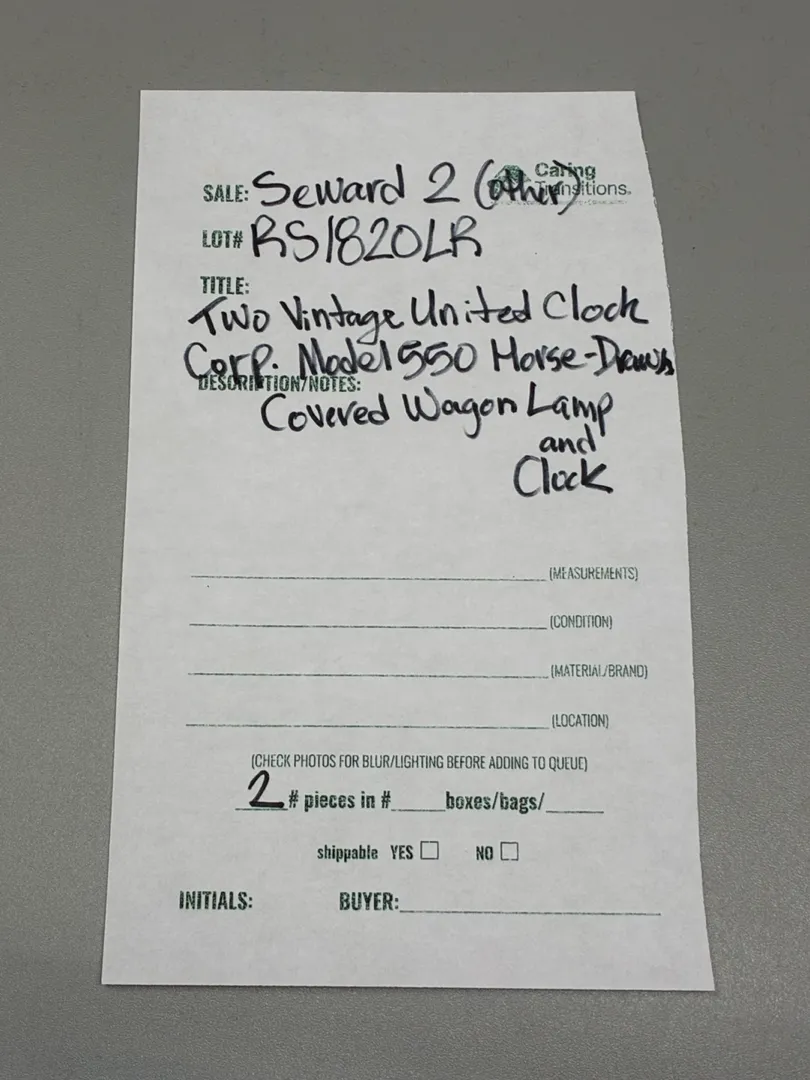 Caring
SALE: Seward 2 (other) Transitions.
LOT# RS1820LR
TITLE:
Two Vintage United Clock
Corp. Model 550 Horse-Drawn
DESCRIPTION/NOTES:
Covered Wagon Lamp
and
Clock
(MEASUREMENTS)
(CONDITION)
(MATERIAL/BRAND)
(LOCATION)
(CHECK PHOTOS FOR BLUR/LIGHTING BEFORE ADDING TO QUEUE)
2 # pieces in #____ boxes/bags/____
shippable YES ☐ NO ☐
INITIALS: BUYER:____